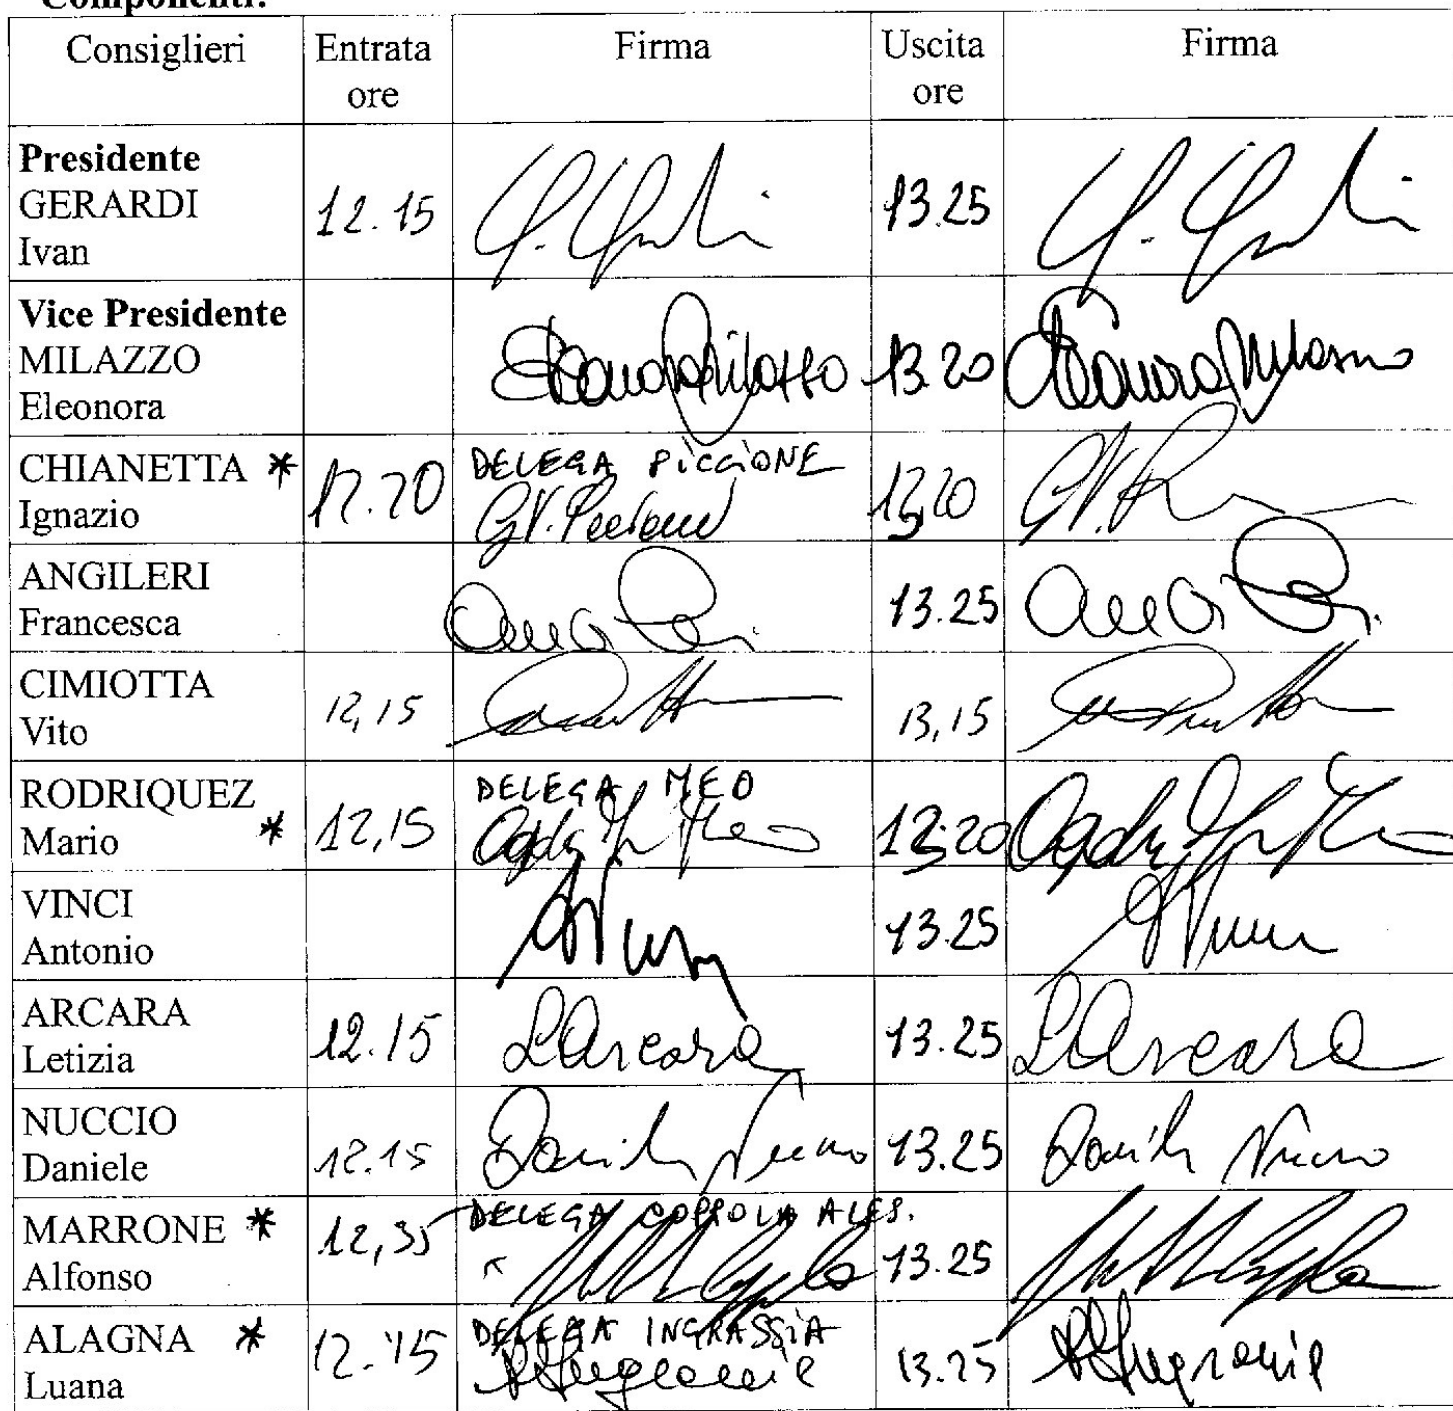 Componenti:
Consiglieri Entrata ore Firma Uscita ore Firma
Presidente
GERARDI
Ivan
12.15
13.25
Vice Presidente
MILAZZO
Eleonora
Eleonora Milazzo
13.20
Eleonora Milazzo
CHIANETTA *
Ignazio
12.20
DELEGA PICCIONE
ANGILERI
Francesca
13.25
CIMIOTTA
Vito
12,15
13,15
RODRIQUEZ
Mario *
12,15
DELEGA MEO
VINCI
Antonio
13.25
ARCARA
Letizia
12.15
L Arcara
13.25
L Arcara
NUCCIO
Daniele
12.15
Daniele Nuccio
13.25
Daniele Nuccio
MARRONE *
Alfonso
12,35
DELEGA COPPOLA ALES.
13.25
ALAGNA *
Luana
DELEGA INGRASSIA
13.25